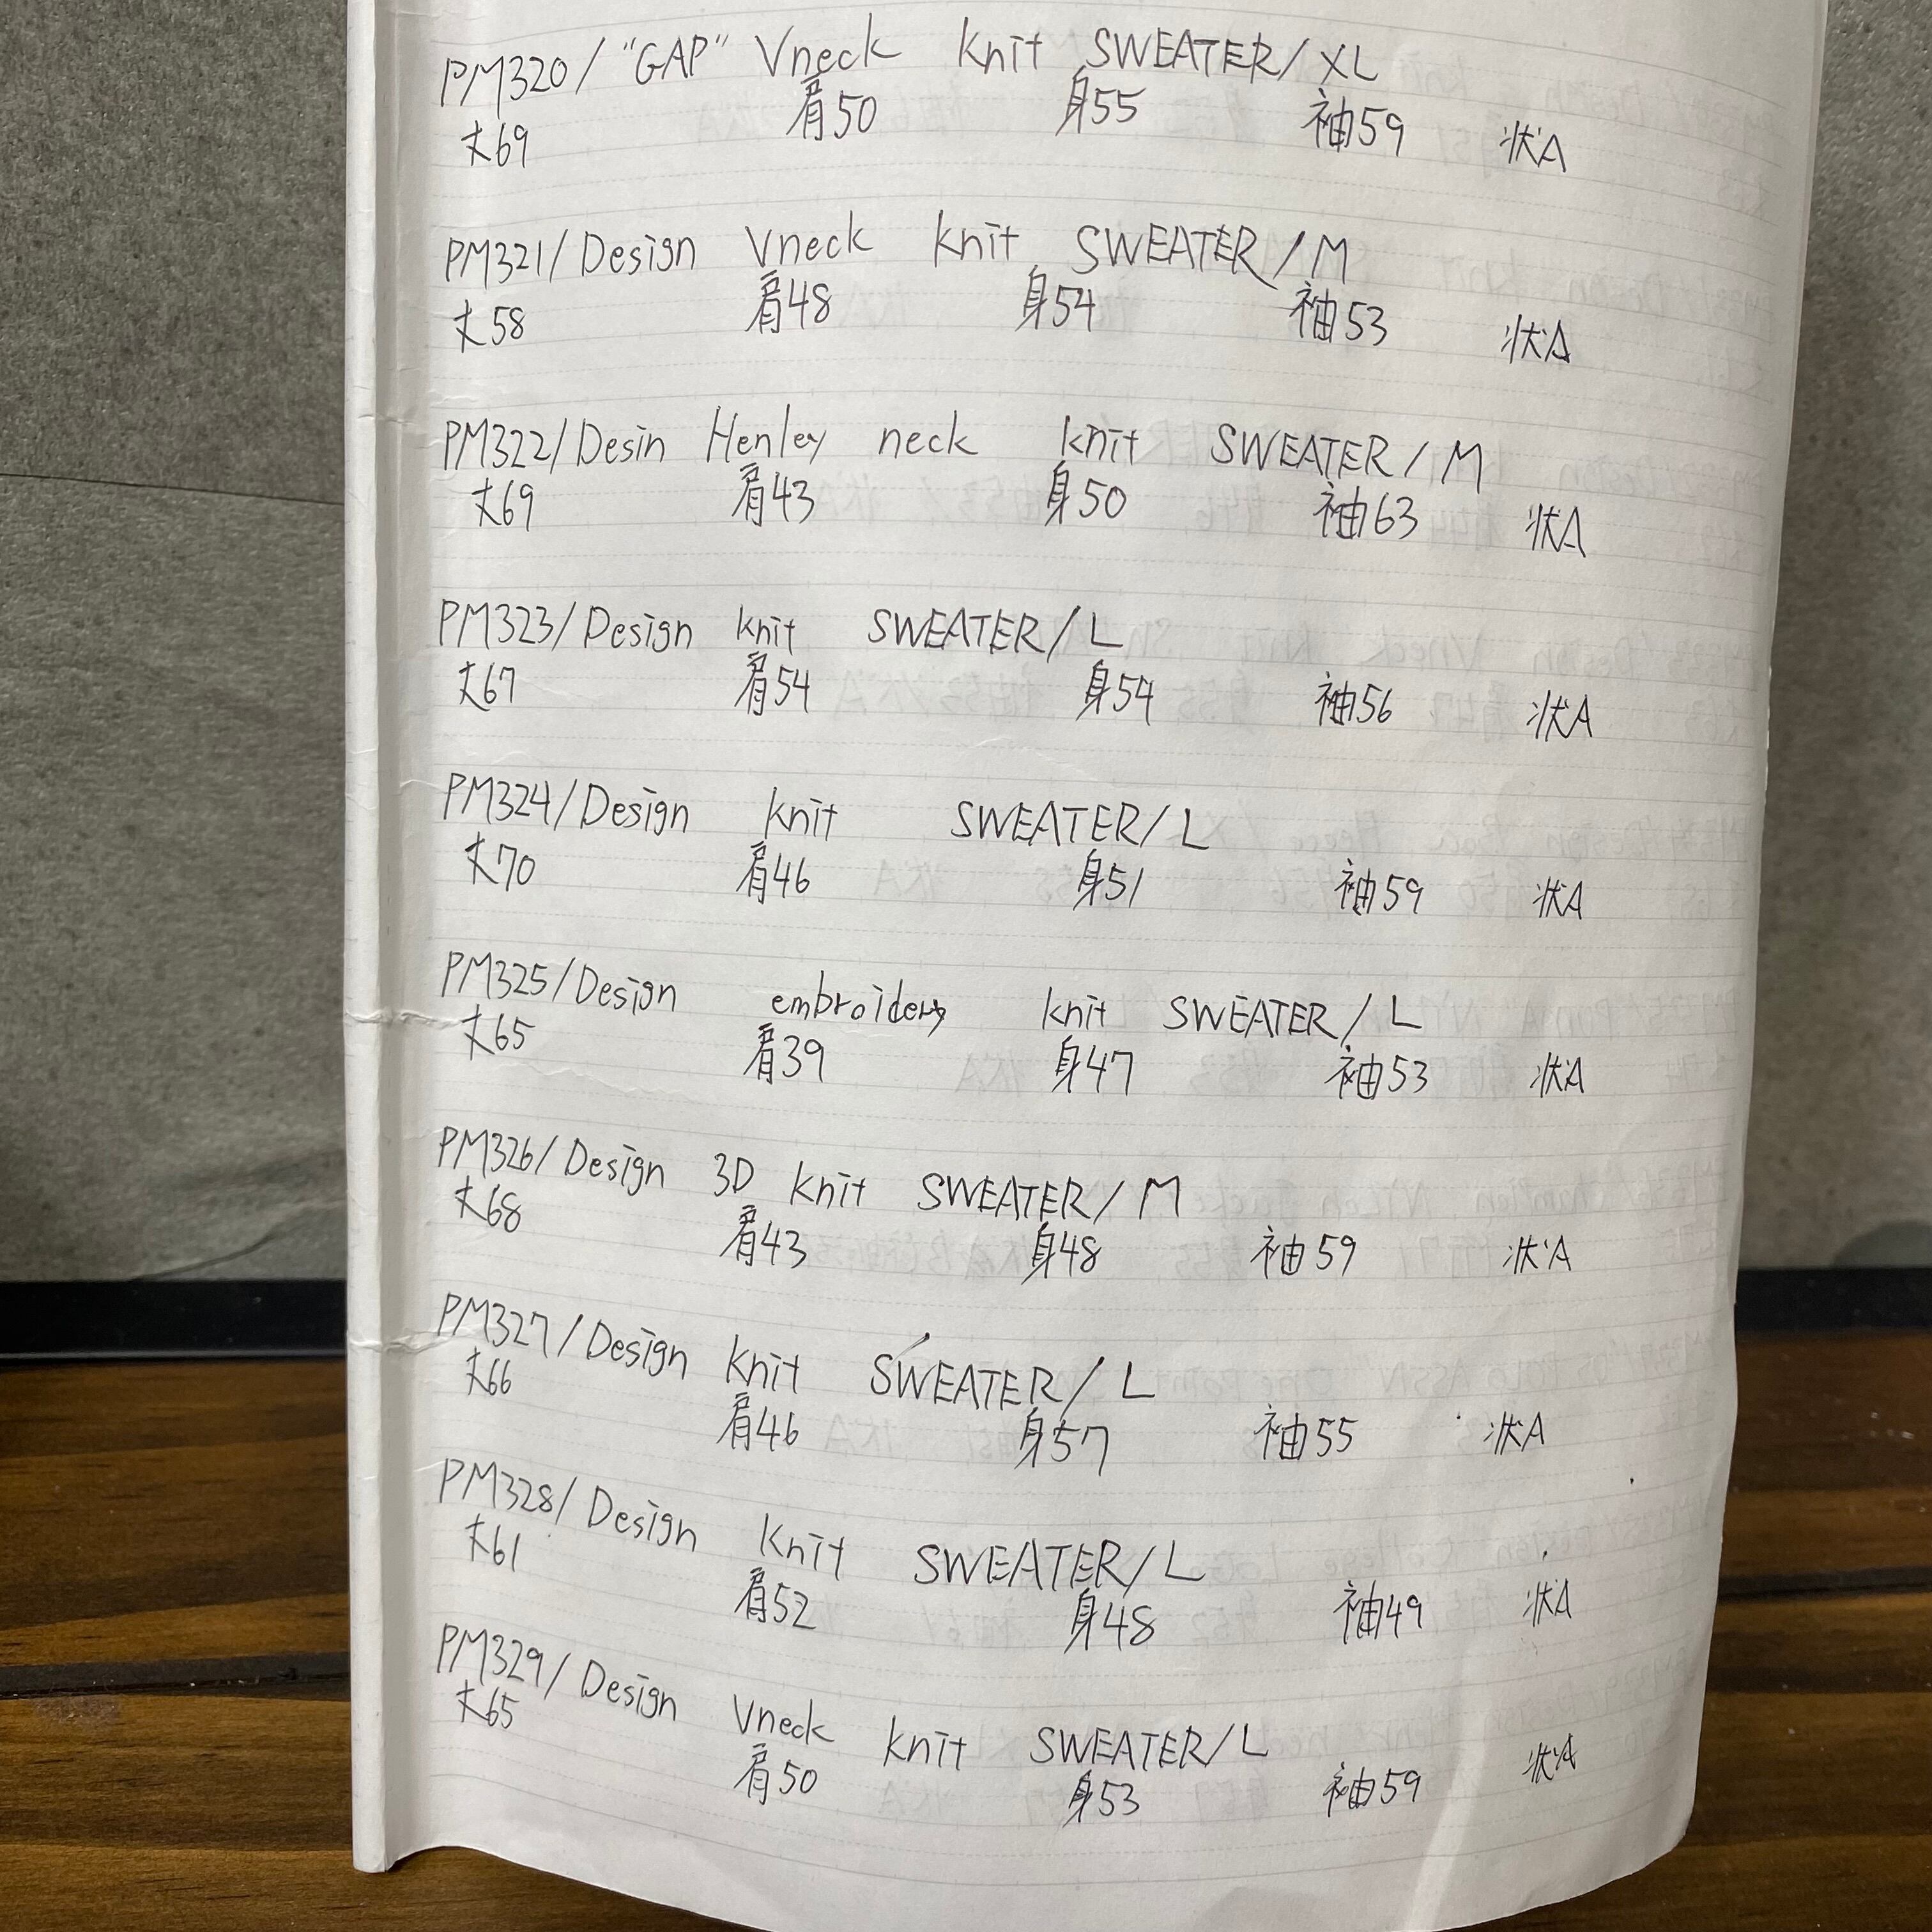 PM320/"GAP" Vneck knit SWEATER/XL
丈69 肩50 身55 袖59 状A
PM321/Design Vneck knit SWEATER/M
丈58 肩48 身54 袖53 状A
PM322/Desin Henley neck knit SWEATER/M
丈69 肩43 身50 袖63 状A
PM323/Design knit SWEATER/L
丈67 肩54 身54 袖56 状A
PM324/Design knit SWEATER/L
丈70 肩46 身51 袖59 状A
PM325/Design embroidery knit SWEATER/L
丈65 肩39 身47 袖53 状A
PM326/Design 3D knit SWEATER/M
丈68 肩43 身48 袖59 状A
PM327/Design knit SWEATER/L
丈66 肩46 身57 袖55 状A
PM328/Design knit SWEATER/L
丈61 肩52 身48 袖49 状A
PM329/Design Vneck knit SWEATER/L
丈65 肩50 身53 袖59 状A